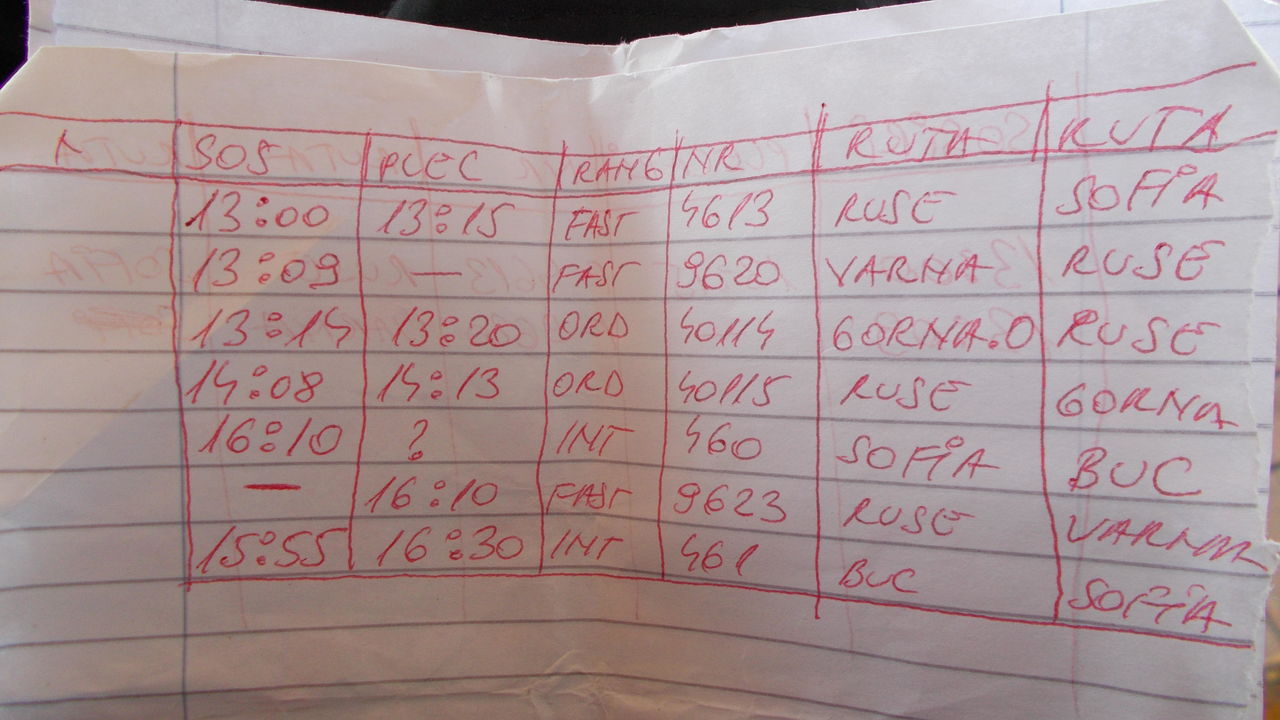 SOS PLEC RANG NR RUTA RUTA
13:00 13:15 FAST 4613 RUSE SOFIA
13:09 — FAST 9620 VARNA RUSE
13:14 13:20 ORD 40114 GORNA.O RUSE
14:08 14:13 ORD 40115 RUSE GORNA
16:10 ? INT 460 SOFIA BUC
— 16:10 FAST 9623 RUSE VARNA
15:55 16:30 INT 461 BUC SOFIA